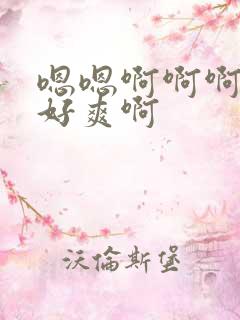 嗯嗯啊啊啊
好爽啊
沃倫斯堡